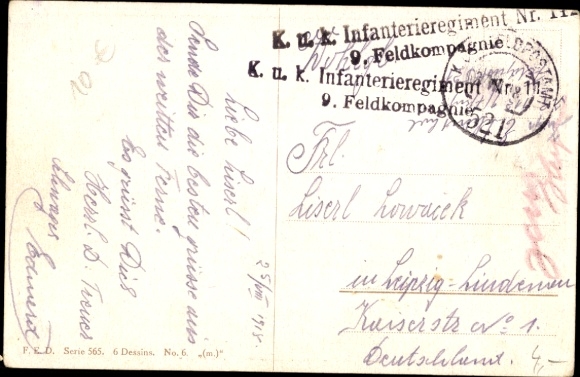 Liebe Liserl!
Sende Dir die besten Grüsse aus
der weiten Ferne.
Es grüsst Dich
Herzl. D. Treuer
Schwager Edmund
25/VIII 1918.
K. u. k. Infanterieregiment Nr. 112
9. Feldkompagnie
K. u. k. Infanterieregiment Nr. 11
9. Feldkompagnie
Frl.
Liserl
in Leipzig-Lindenau
Kaiserstr No 1.
Deutschland.
4,-
F. E. D. Serie 565. 6 Dessins. No. 6. „(m.)“